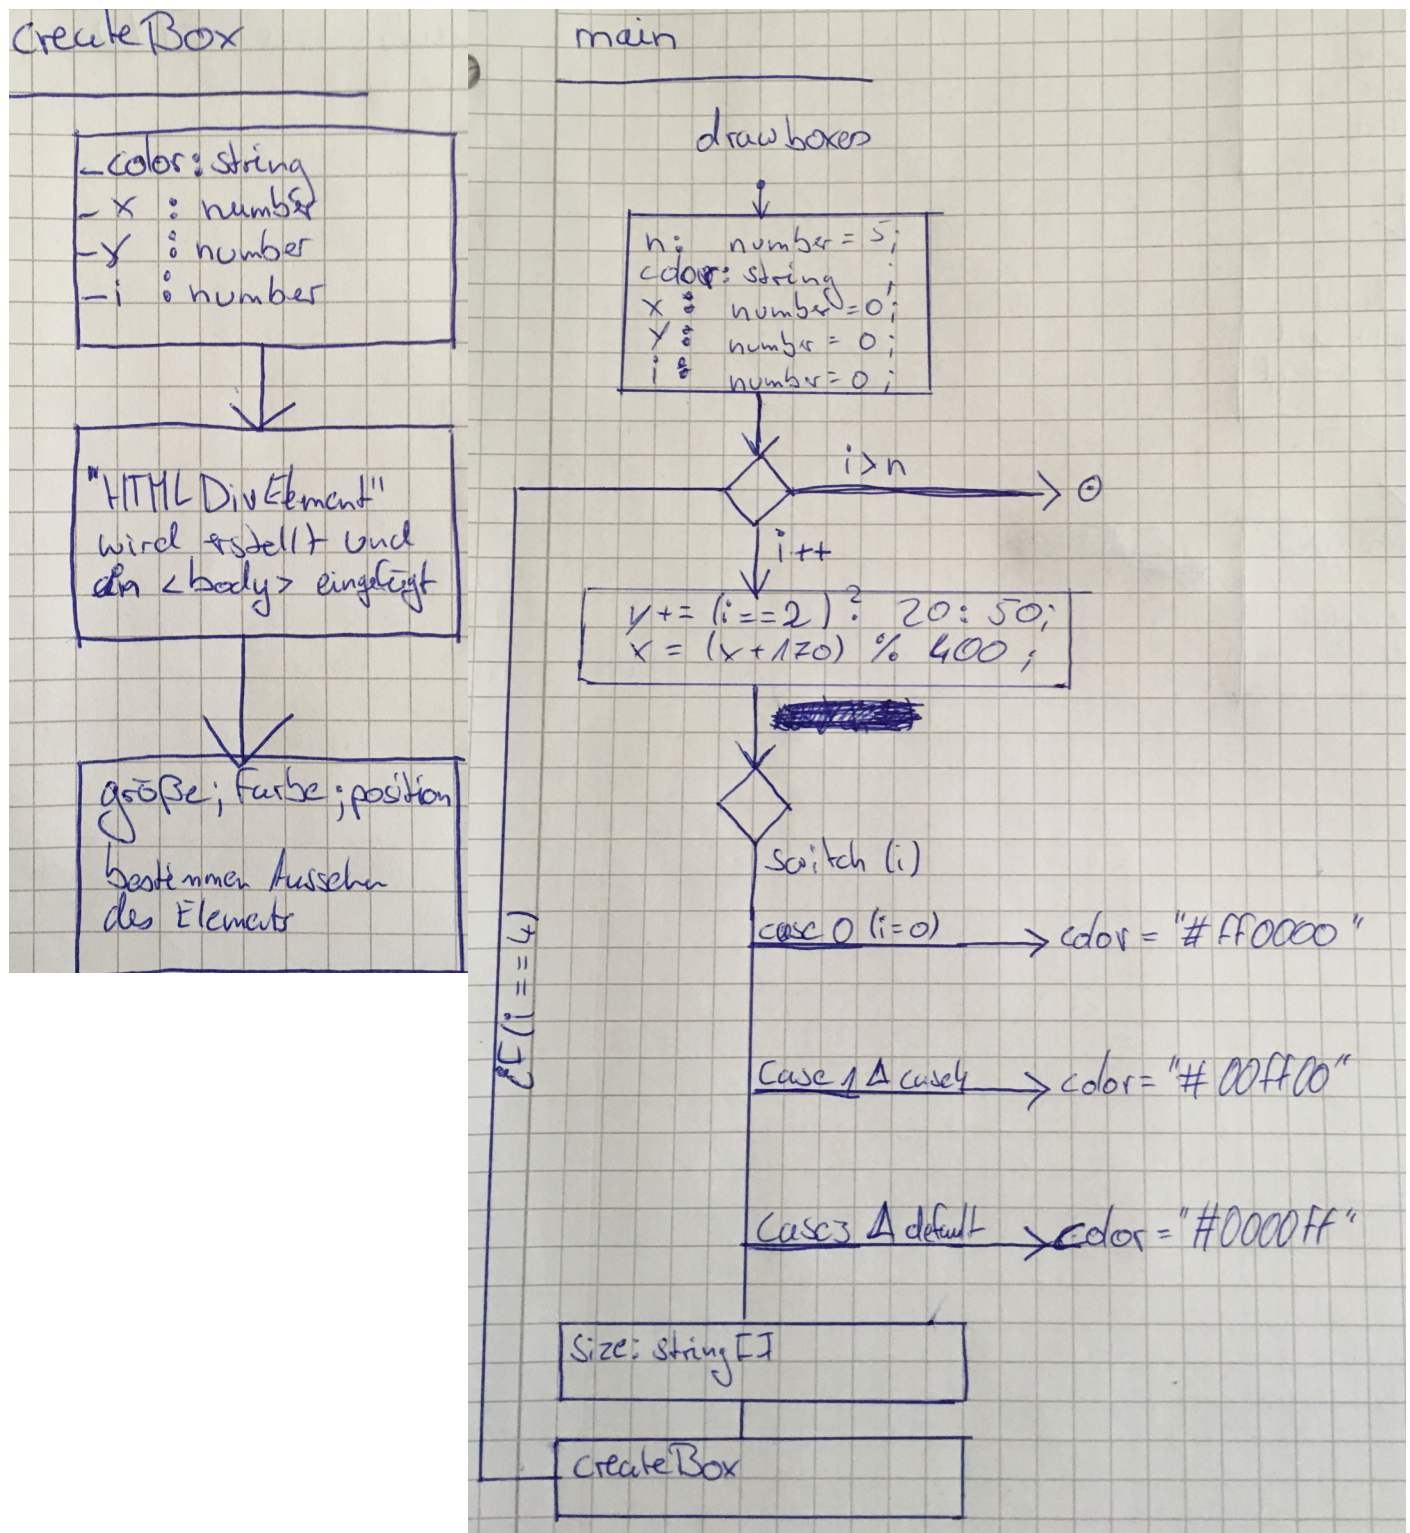 createBox
- color: string
- x : number
- y : number
- i : number
"HTML DivElement"
wird erstellt und
in <body> eingefügt
größe; Farbe; position
bestimmen Aussehen
des Elements
main
drawboxes
n: number = 5;
color: string ;
x : number = 0;
y : number = 0;
i : number = 0;
i > n
i++
y += (i==2)? 20: 50;
x = (x+170) % 400;
switch (i)
case 0 (i=0) color = "#ff0000"
Case 1 Δ case4 color = "#00ff00"
Case3 Δ default color = "#0000ff"
(i==4)
Size: string[]
createBox